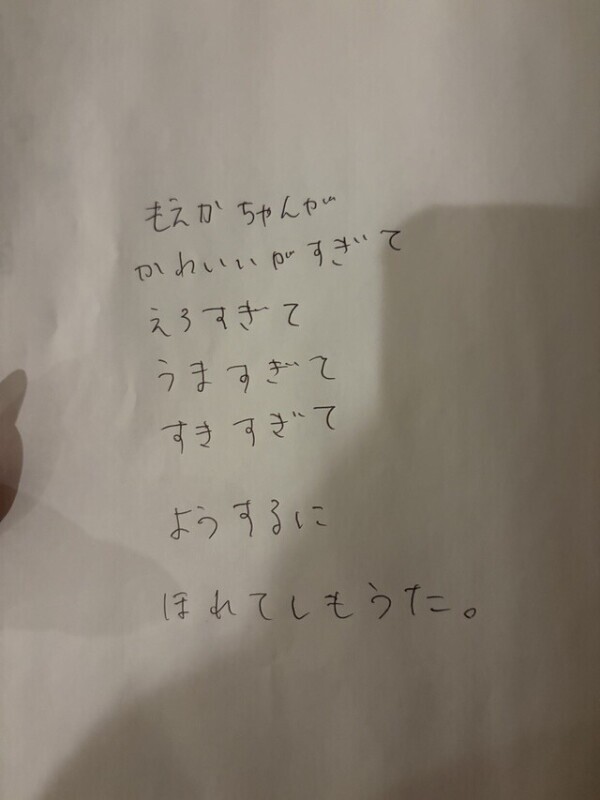 もえかちゃんが
かわいいがすぎて
えろすぎて
うますぎて
すきすぎて
ようするに
ほれてしもうた。